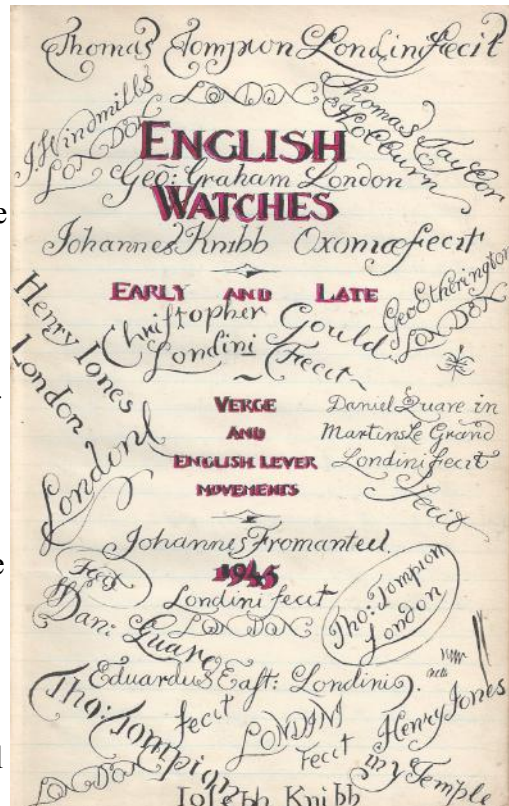 Thomas Tompion Londini fecit
LONDON
J. Windmills
LONDON
Thomas Taylor
Holburn
ENGLISH
Geo: Graham London
WATCHES
Johannes Knibb Oxoniæ fecit
EARLY AND LATE
Geo Etherington
LONDON
Henry Jones
London
Christopher Gould
Londini Fecit
VERGE
AND
ENGLISH LEVER
MOVEMENTS
Daniel Quare in
Martins Le Grand
Londini fecit
fecit
London
Johannes Fromanteel.
1945
Fecit
Londini fecit
LONDON
Tho: Tompion
London
Dani: Quare
Eduardus East: Londini
fecit
Tho: Tompion
LONDINI
Fecit
Henry Jones
in y Temple
LONDON
Joseph Knibb
e
e